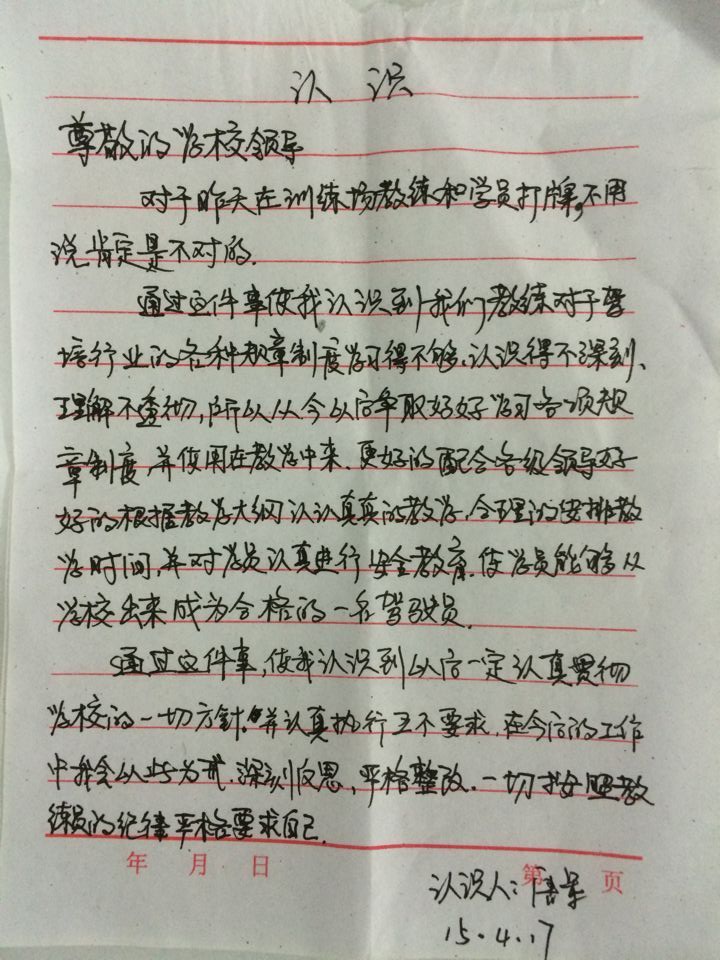 认 识
尊敬的学校领导
对于昨天在训练场教练和学员打牌,不用
说肯定是不对的.
通过这件事使我认识到我们教练对于驾
培行业的各种规章制度学习得不够、认识得不深刻、
理解不透彻,所以从今以后争取好好学习各项规
章制度,并使用在教学中来.更好的配合各级领导好
好的根据教学大纲认认真真的教学.合理的安排教
学时间,并对学员认真进行安全教育.使学员能够从
学校出来成为合格的一名驾驶员.
通过这件事,使我认识到以后一定认真贯彻
学校的一切方针.并认真执行五不要求,在今后的工作
中我会以此为戒.深刻反思,严格整改.一切按照教
练员的纪律严格要求自己.
年 月 日 第 页
认识人:
15.4.17